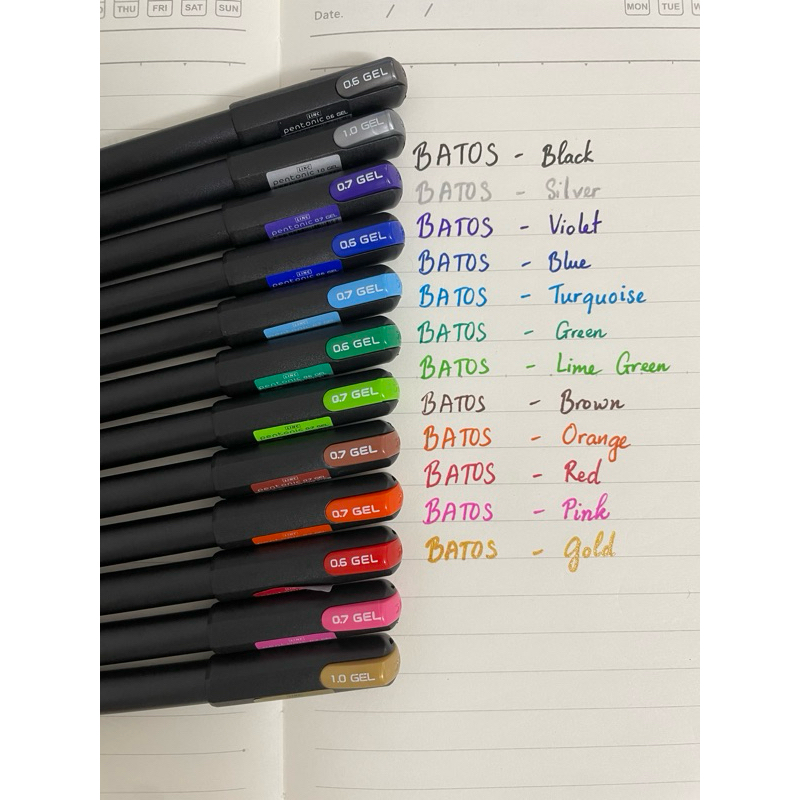 THU FRI SAT SUN
Date. / /
MON TUE
0.6 GEL
LINC
pentonic 0.6 GEL
1.0 GEL
LINC
pentonic 1.0 GEL
0.7 GEL
LINC
pentonic 0.7 GEL
0.6 GEL
LINC
pentonic 0.6 GEL
0.7 GEL
0.6 GEL
LINC
pentonic 0.6 GEL
0.7 GEL
LINC
pentonic 0.7 GEL
0.7 GEL
LINC
pentonic 0.7 GEL
0.7 GEL
0.6 GEL
0.7 GEL
1.0 GEL
BATOS - Black
BATOS - Silver
BATOS - Violet
BATOS - Blue
BATOS - Turquoise
BATOS - Green
BATOS - Lime Green
BATOS - Brown
BATOS - Orange
BATOS - Red
BATOS - Pink
BATOS - Gold